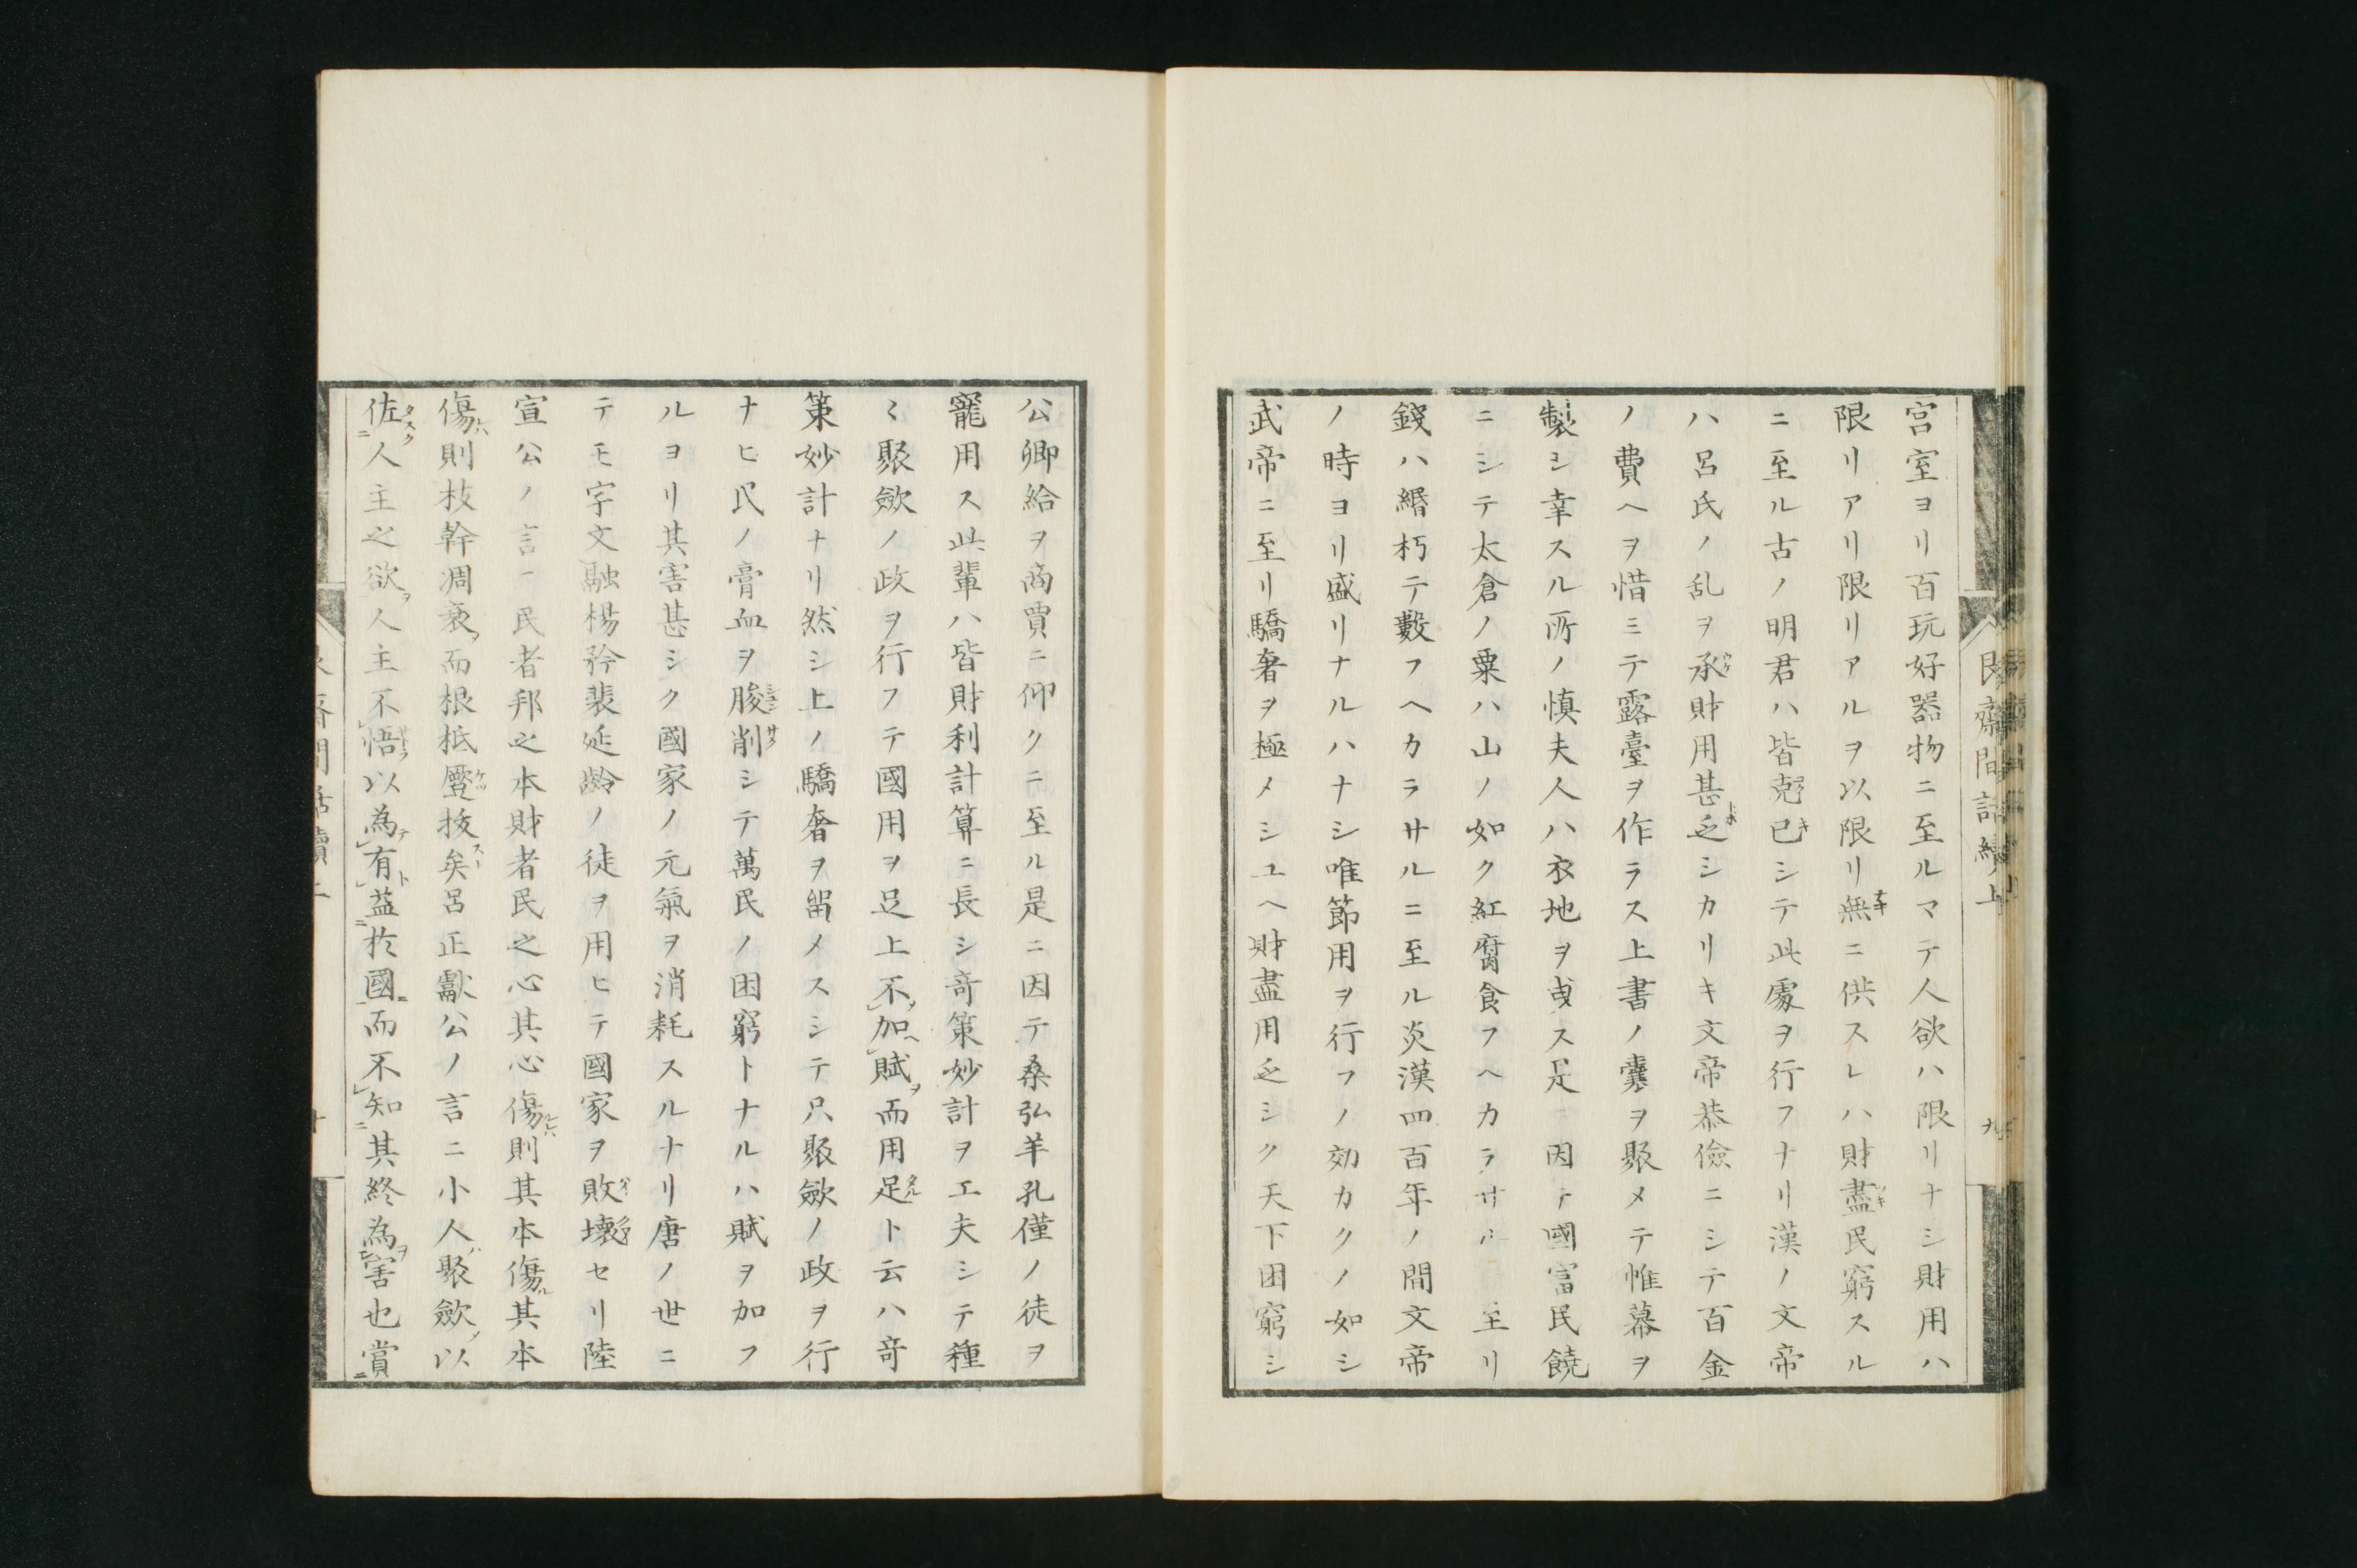 宮室ヨリ百玩好器物ニ至ルマテ人欲ハ限リナシ財用ハ
限リアリ限リアルヲ以限リ無ニ供スレハ財盡民窮スル
ニ至ル古ノ明君ハ皆克己シテ此處ヲ行フナリ漢ノ文帝
ハ呂氏ノ乱ヲ承財用甚乏シカリキ文帝恭儉ニシテ百金
ノ費ヘヲ惜ミテ露臺ヲ作ラス上書ノ囊ヲ聚メテ惟幕ヲ
製シ幸スル所ノ慎夫人ハ衣地ヲ曳ス是ニ因テ國富民饒
ニシテ太倉ノ粟ハ山ノ如ク紅腐食フヘカラサルニ至リ
錢ハ緡朽テ數フヘカラサルニ至ル炎漢四百年ノ間文帝
ノ時ヨリ盛リナルハナシ唯節用ヲ行フノ効カクノ如シ
武帝ニ至リ驕奢ヲ極メシユヘ財盡用乏シク天下困窮シ
艮齋間話續上
九
公卿給ヲ商賈ニ仰クニ至ル是ニ因テ桑弘羊孔僅ノ徒ヲ
寵用ス此輩ハ皆財利計算ニ長シ竒策妙計ヲ工夫シテ種
々聚斂ノ政ヲ行フテ國用ヲ足上不加賦而用足ト云ハ竒
策妙計ナリ然シ上ノ驕奢ヲ留メスシテ只聚斂ノ政ヲ行
ナヒ民ノ膏血ヲ朘削シテ萬民ノ困窮トナルハ賦ヲ加フ
ルヨリ其害甚シク國家ノ元氣ヲ消耗スルナリ唐ノ世ニ
テモ宇文融楊矜裴延齡ノ徒ヲ用ヒテ國家ヲ敗壞セリ陸
宣公ノ言ニ民者邦之本財者民之心其心傷則其本傷其本
傷則枝幹凋衰而根柢蹷抜矣呂正獻公ノ言ニ小人聚斂以
佐人主之欲人主不悟以為有益於國而不知其終為害也賞